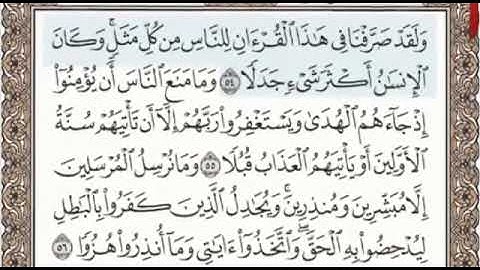 وَلَقَدْ صَرَّفْنَا فِى هَٰذَا ٱلْقُرْءَانِ لِلنَّاسِ مِن كُلِّ مَثَلٍ ۚ وَكَانَ
ٱلْإِنسَٰنُ أَكْثَرَ شَىْءٍ جَدَلًا ٥٤ وَمَا مَنَعَ ٱلنَّاسَ أَن يُؤْمِنُوٓا۟
إِذْ جَآءَهُمُ ٱلْهُدَىٰ وَيَسْتَغْفِرُوا۟ رَبَّهُمْ إِلَّآ أَن تَأْتِيَهُمْ سُنَّةُ
ٱلْأَوَّلِينَ أَوْ يَأْتِيَهُمُ ٱلْعَذَابُ قُبُلًا ٥٥ وَمَا نُرْسِلُ ٱلْمُرْسَلِينَ
إِلَّا مُبَشِّرِينَ وَمُنذِرِينَ ۚ وَيُجَٰدِلُ ٱلَّذِينَ كَفَرُوا۟ بِٱلْبَٰطِلِ
لِيُدْحِضُوا۟ بِهِ ٱلْحَقَّ ۖ وَٱتَّخَذُوٓا۟ ءَايَٰتِى وَمَآ أُنذِرُوا۟ هُزُوًا ٥٦